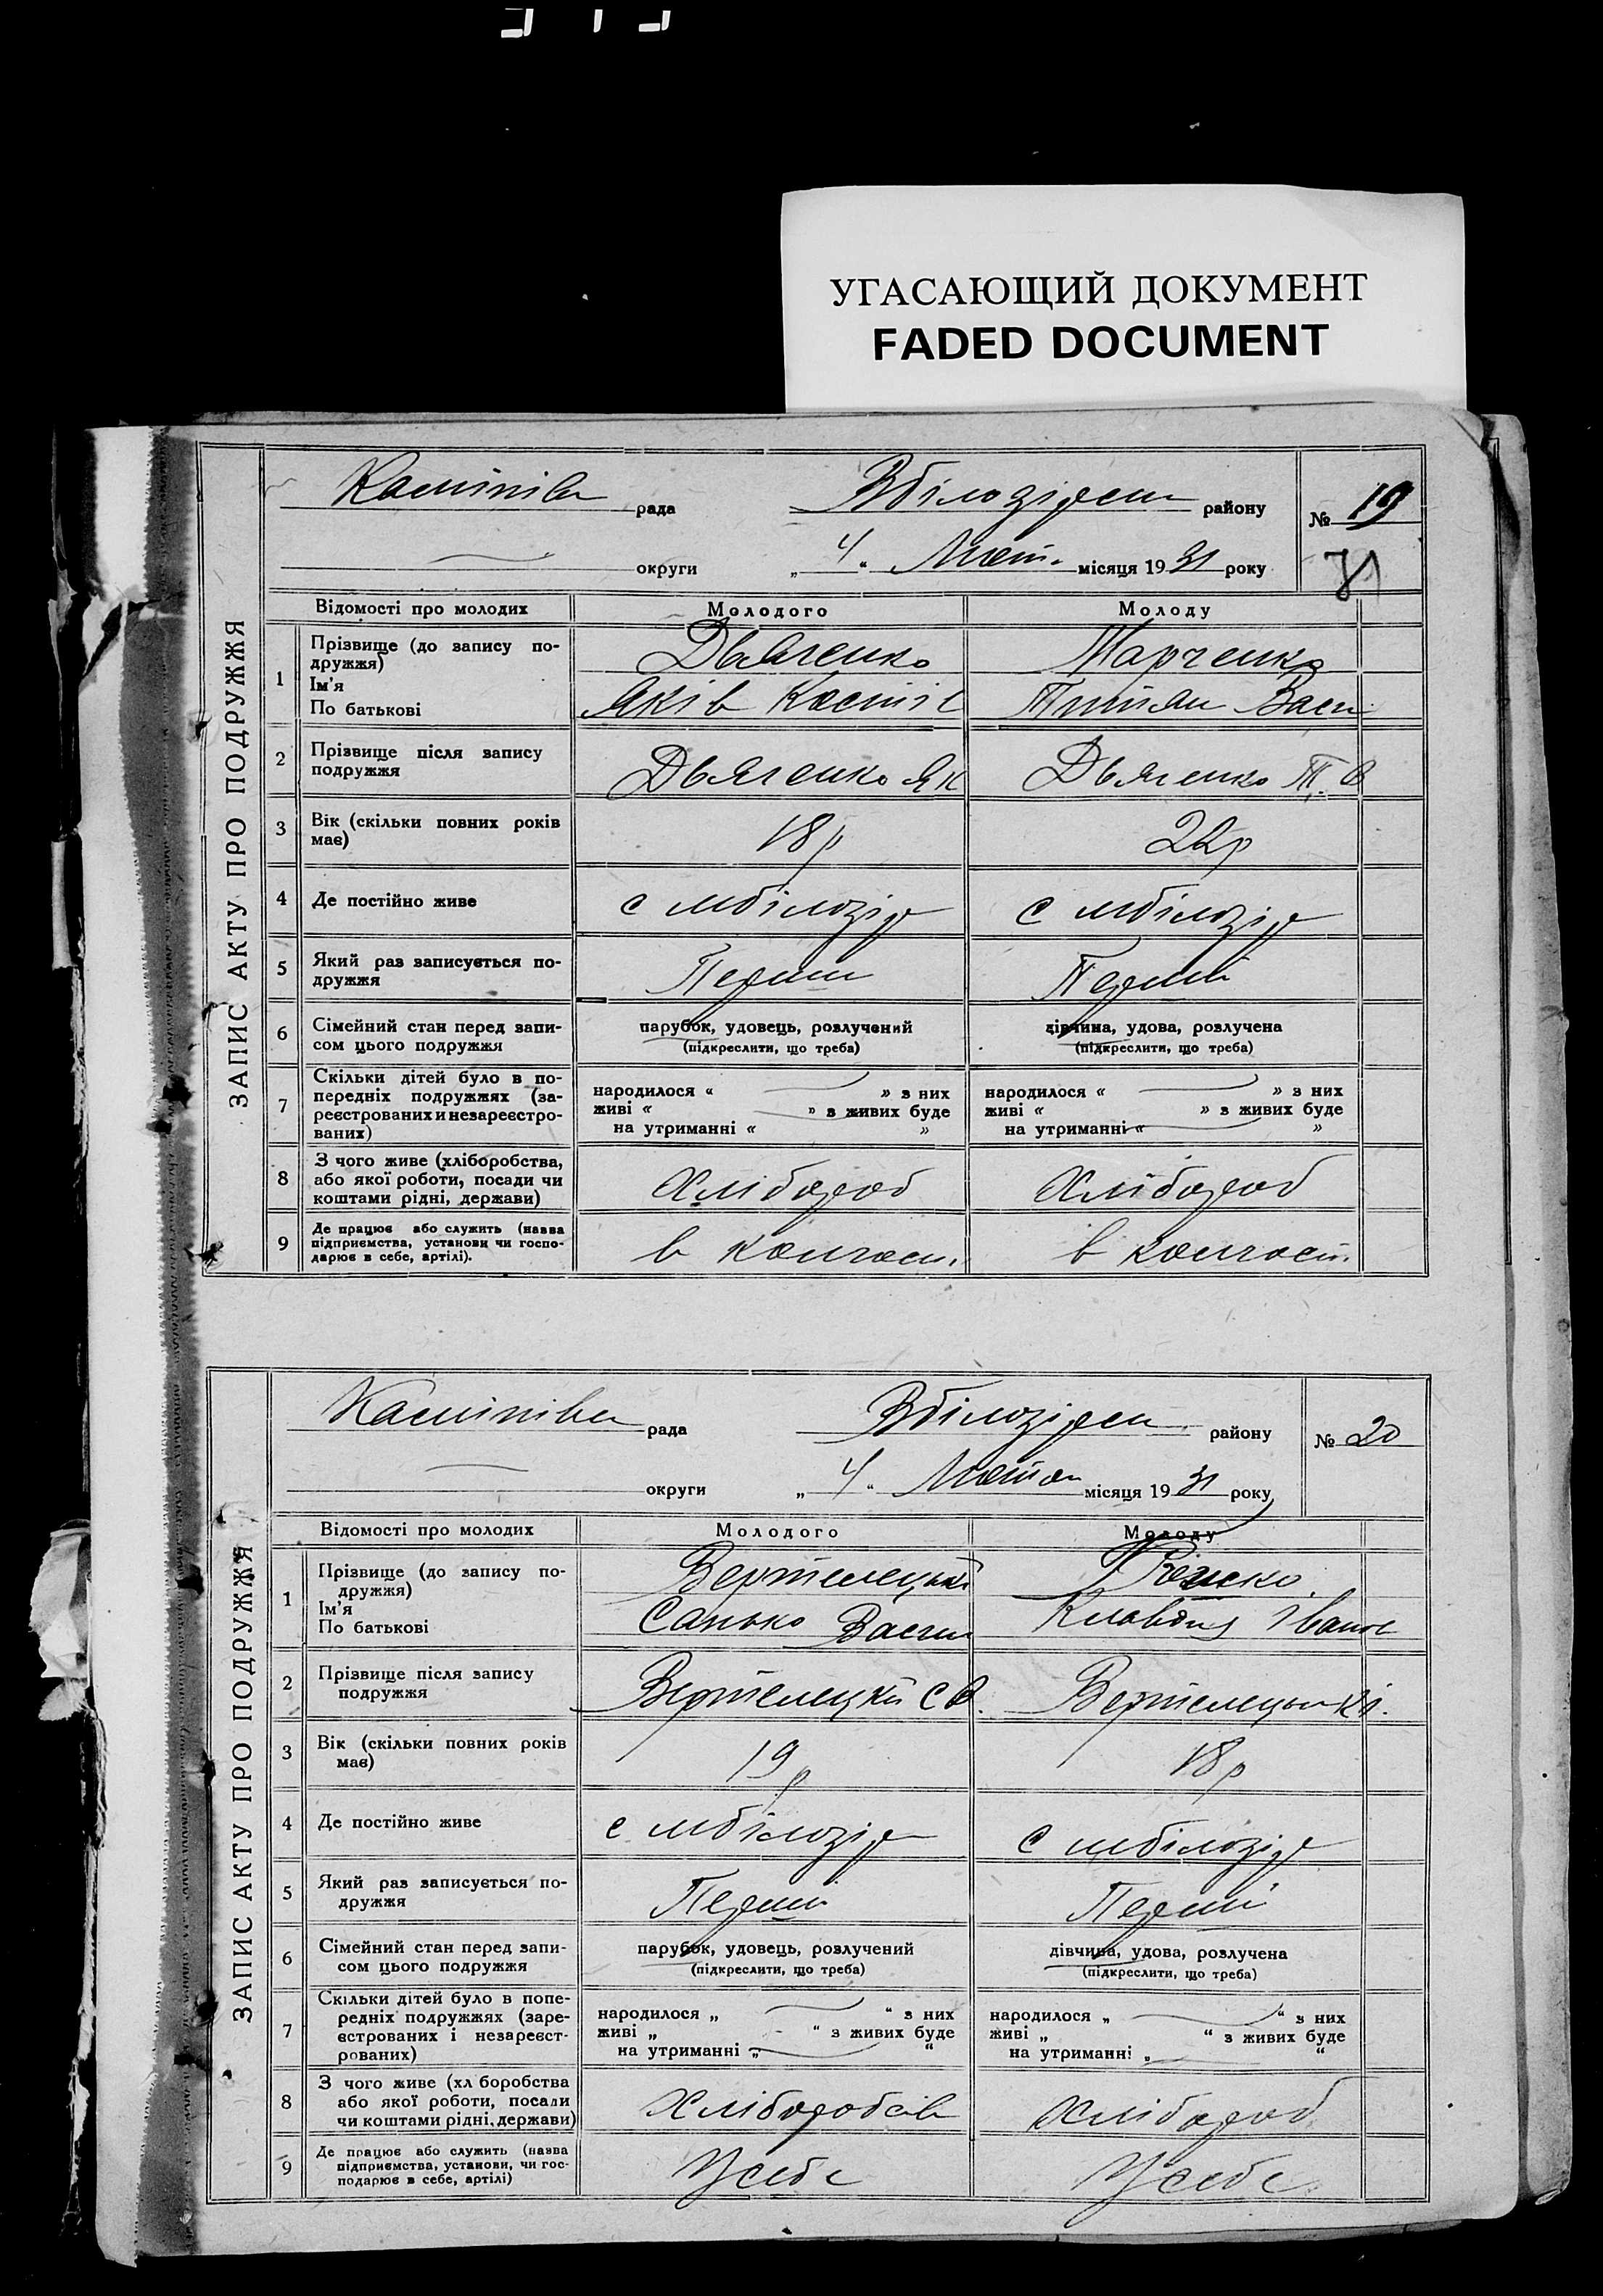 УГАСАЮЩИЙ ДОКУМЕНТ
FADED DOCUMENT
ЗАПИС АКТУ ПРО ПОДРУЖЖЯ
рада Вбілозірськ району № 19
округи „ 4 “ Лют. місяця 19 31 року 71
Відомості про молодих Молодого Молоду
1 Прізвище (до запису по-
дружжя)
Ім'я
По батькові
Дьяченко Марченко
Яків Костів Титян Васи
2 Прізвище після запису
подружжя
Дьяченко ЯК Дьяченко Т. В
3 Вік (скільки повних років
має)
18р 22р
4 Де постійно живе с мбілозір с мбілозір
5 Який раз записується по-
дружжя
Перши Перший
6 Сімейний стан перед запи-
сом цього подружжя
парубок, удовець, розлучений дівчина, удова, розлучена
(підкреслити, що треба) (підкреслити, що треба)
7 Скільки дітей було в по-
передніх подружжях (за-
реєстрованих и незареєстро-
ваних)
народилося « » з них народилося « » з них
живі « » з живих буде живі « » з живих буде
на утриманні « » на утриманні « »
8 З чого живе (хліборобства,
або якої роботи, посади чи
коштами рідні, держави)
Хлібороб Хлібороб
9 Де працює або служить (назва
підприємства, установи чи госпо-
дарює в себе, артілі).
в колгосп. в колгосп.
ЗАПИС АКТУ ПРО ПОДРУЖЖЯ
рада Вбілозірськ району № 20
округи „ 4 “ Лютом місяця 19 31 року
Відомості про молодих Молодого Молоду
1 Прізвище (до запису по-
дружжя)
Ім'я
По батькові
Вертелецький
Санько Васил Клавдия Іванов
2 Прізвище після запису
подружжя
Вертелецкий С В.
3 Вік (скільки повних років
має)
19р 18р
4 Де постійно живе с мбілозір с мбілозір
5 Який раз записується по-
дружжя
Перший Перший
6 Сімейний стан перед запи-
сом цього подружжя
парубок, удовець, розлучений дівчина, удова, розлучена
(підкреслити, що треба) (підкреслити, що треба)
7 Скільки дітей було в попе-
редніх подружжях (заре-
єстрованих і незареєст-
рованих)
народилося „ “ з них народилося „ “ з них
живі „ “ з живих буде живі „ “ з живих буде
на утриманні „ “ на утриманні „ “
8 З чого живе (хл боробства
або якої роботи, посади
чи коштами рідні, держави)
Хлібороб
9 Де працює або служить (назва
підприємства, установи, чи гос-
подарює в себе, артілі)
У себе У себе